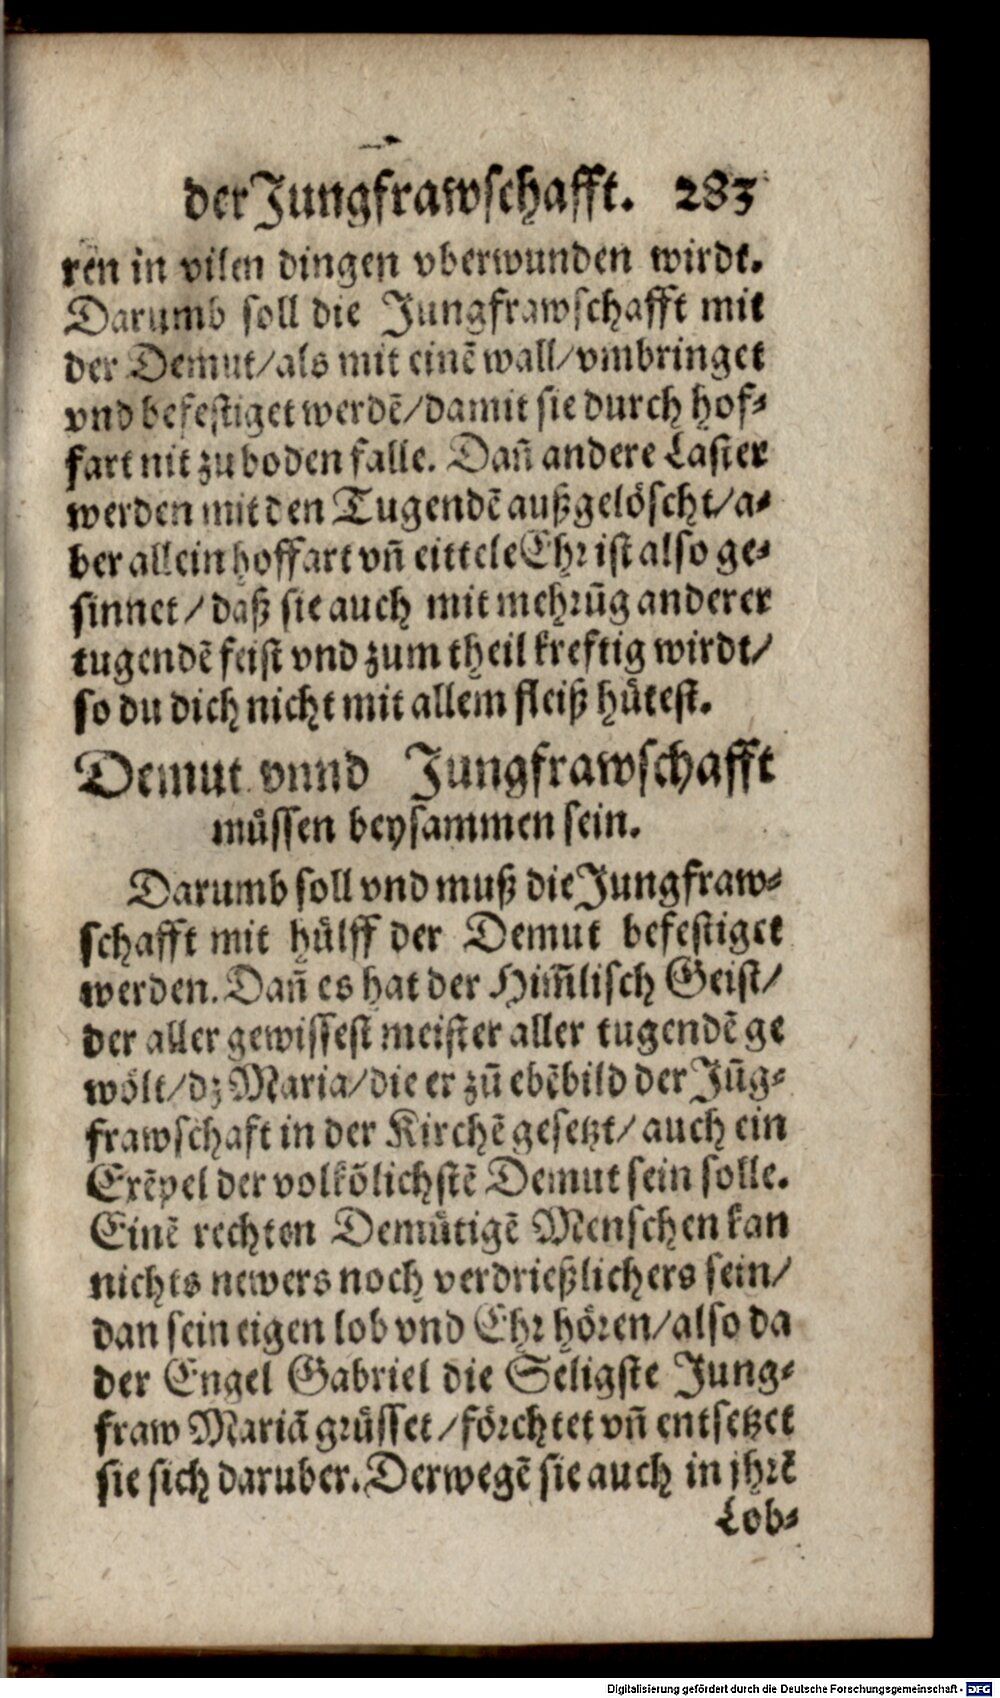 der Jungfrawschafft. 283
ren in vilen dingen vberwunden wirdt.
Darumb soll die Jungfrawschafft mit
der Demut/als mit einē wall/vmbringet
vnd befestiget werdē/damit sie durch hof⸗
fart nit zu boden falle. Dañ andere Laster
werden mit den Tugendē außgelöscht/a⸗
ber allein hoffart vñ eittele Ehr ist also ge⸗
sinnet/daß sie auch mit mehrūg anderer
tugendē feist vnd zum theil kreftig wirdt/
so du dich nicht mit allem fleiß hütest.
Demut vnnd Jungfrawschafft
müssen beysammen sein.
Darumb soll vnd muß die Jungfraw⸗
schafft mit hülff der Demut befestiget
werden. Dañ es hat der Him̄lisch Geist/
der aller gewissest meister aller tugendē ge
wölt/dz Maria/die er zū ebēbild der Jūg⸗
frawschaft in der Kirchē gesetzt/auch ein
Exēpel der volkōlichstē Demut sein solle.
Einē rechten Demütigē Menschen kan
nichts newers noch verdrießlichers sein/
dan sein eigen lob vnd Ehr hören/also da
der Engel Gabriel die Seligste Jung⸗
fraw Mariā grüsset/förchtet vñ entsetzet
sie sich daruber. Derwegē sie auch in jhrē
Lob⸗
Digitalisierung gefördert durch die Deutsche Forschungsgemeinschaft - DFG